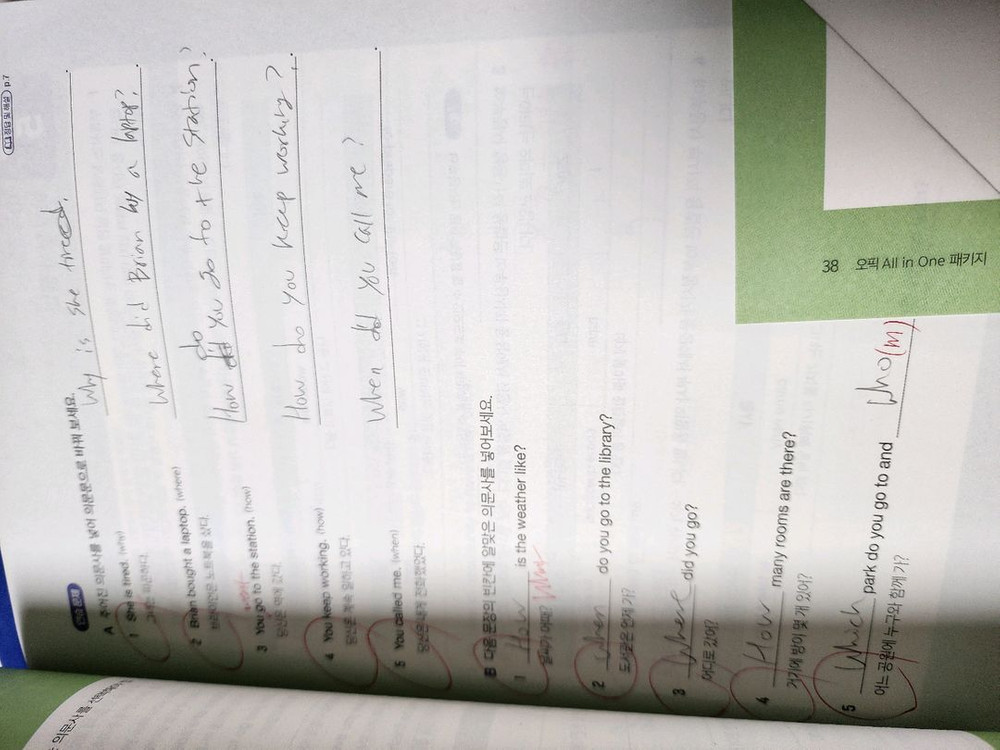 p.7
연습 문제
A 주어진 의문사를 넣어 의문문으로 바꿔 보세요.
1 She is tired. (why)
그녀는 피곤하다.
Why is she tired.
2 Brian bought a laptop. (where)
브라이언은 노트북을 샀다.
Where did Brian buy a laptop?
went
3 You go to the station. (how)
당신은 역에 갔다.
do
How did you go to the station?
4 You keep working. (how)
당신은 계속 일하고 있다.
How do you keep working?
5 You called me. (when)
당신은 나에게 전화했었다.
When did you call me?
B 다음 문장의 빈칸에 알맞은 의문사를 넣어보세요.
1 How is the weather like?
날씨가 어때? What
2 When do you go to the library?
도서관은 언제 가?
3 Where did you go?
어디로 갔어?
4 How many rooms are there?
거기에 방이 몇 개 있어?
5 Which park do you go to and Who(m)
어느 공원에 누구와 함께 가?
38 오픽 All in One 패키지